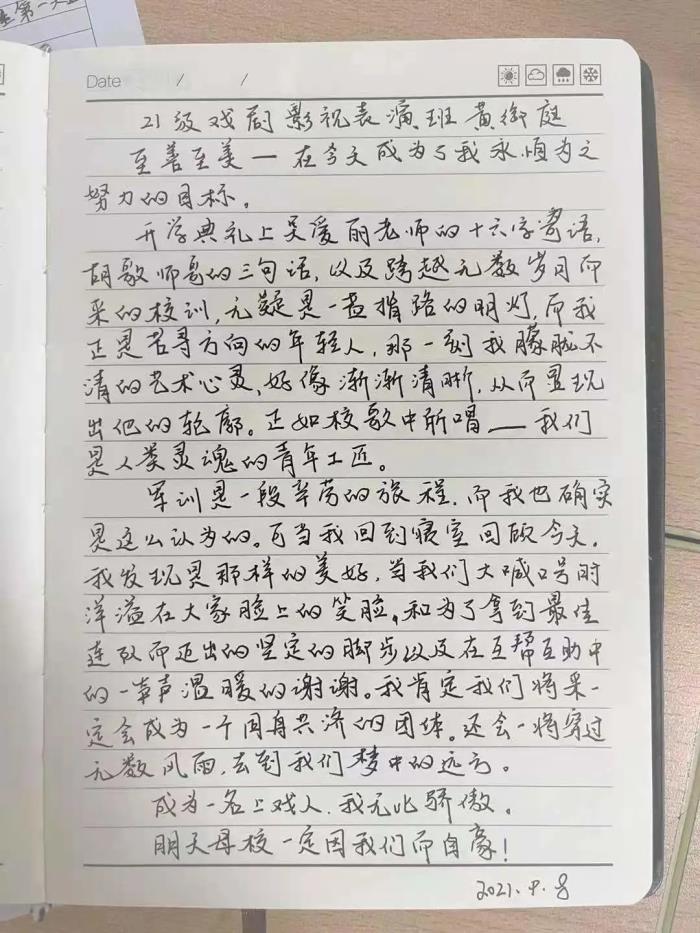 第一天
Date / /
21级戏剧影视表演班黄衔庭
至善至美—在今天成为了我永恒为之
努力的目标。
开学典礼上吴爱丽老师的十六字寄语,
胡歌师哥的三句话,以及跨越无数岁月而
来的校训,无疑是一盏指路的明灯,而我
正是苦寻方向的年轻人,那一刻我朦胧不
清的艺术心灵,好像渐渐清晰,从而显现
出他的轮廓。正如校歌中所唱——我们
是人类灵魂的青年工匠。
军训是一段辛劳的旅程,而我也确实
是这么认为的。可当我回到寝室回放今天,
我发现是那样的美好,当我们大喊口号时
洋溢在大家脸上的笑脸,和为了拿到最佳
连队而迈出的坚定的脚步以及在互帮互助中
的一声声温暖的谢谢。我肯定我们将来一
定会成为一个同舟共济的团体。还会一将穿过
无数风雨,去到我们梦中的远方。
成为一名上戏人,我无比骄傲。
明天母校一定因我们而自豪!
2021.9.8